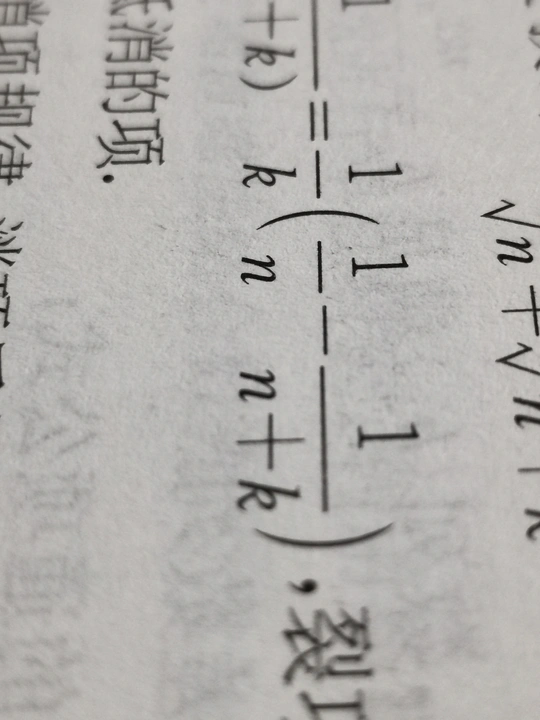 √n+√n+k
+k) = 1/k(1/n − 1/(n+k)), 裂
消的项.
项规律